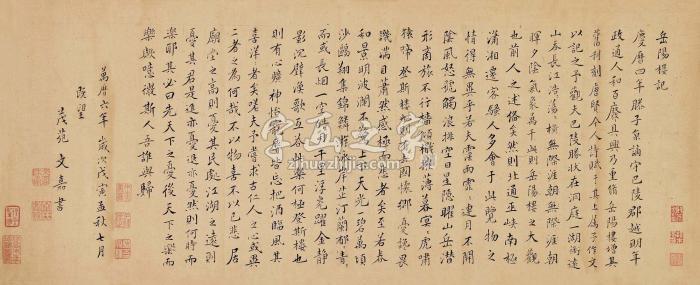 岳陽樓記
慶曆四年滕子京謫守巴陵郡越明年
政通人和百廢具興乃重脩岳陽樓增其
舊制刻唐賢今人詩賦于其上屬予作文
以記之予觀夫巴陵勝狀在洞庭一湖銜遠
山吞長江浩浩蕩蕩橫無際涯朝
暉夕陰氣象萬千此則岳陽樓之大觀
也前人之述備矣然則北通巫峽南極
瀟湘遷客騷人多會于此覽物之
情得無異乎若夫霪雨霏霏連月不開
陰風怒號濁浪排空日星隱曜山岳潛
形商旅不行檣傾楫摧薄暮冥冥虎嘯
猿啼登斯樓也則有去國懷鄉憂讒畏
譏滿目蕭然感極而悲者矣至若春
和景明波瀾不驚上下天光一碧萬頃
沙鷗翔集錦鱗游泳岸芷汀蘭郁郁青青
而或長烟一空皓月千里浮光躍金靜
影沉璧漁歌互答此樂何極登斯樓也
則有心曠神怡寵辱皆忘把酒臨風其
喜洋洋者矣嗟夫予嘗求古仁人之心或異
二者之為何哉不以物喜不以己悲居
廟堂之高則憂其民處江湖之遠則
憂其君是進亦憂退亦憂然則何時而
樂耶其必曰先天下之憂後天下之樂而
樂歟噫微斯人吾誰與歸
萬曆六年歲次戊寅孟秋七月
既望
茂苑文嘉書
字画之家
zihuazhijia.com